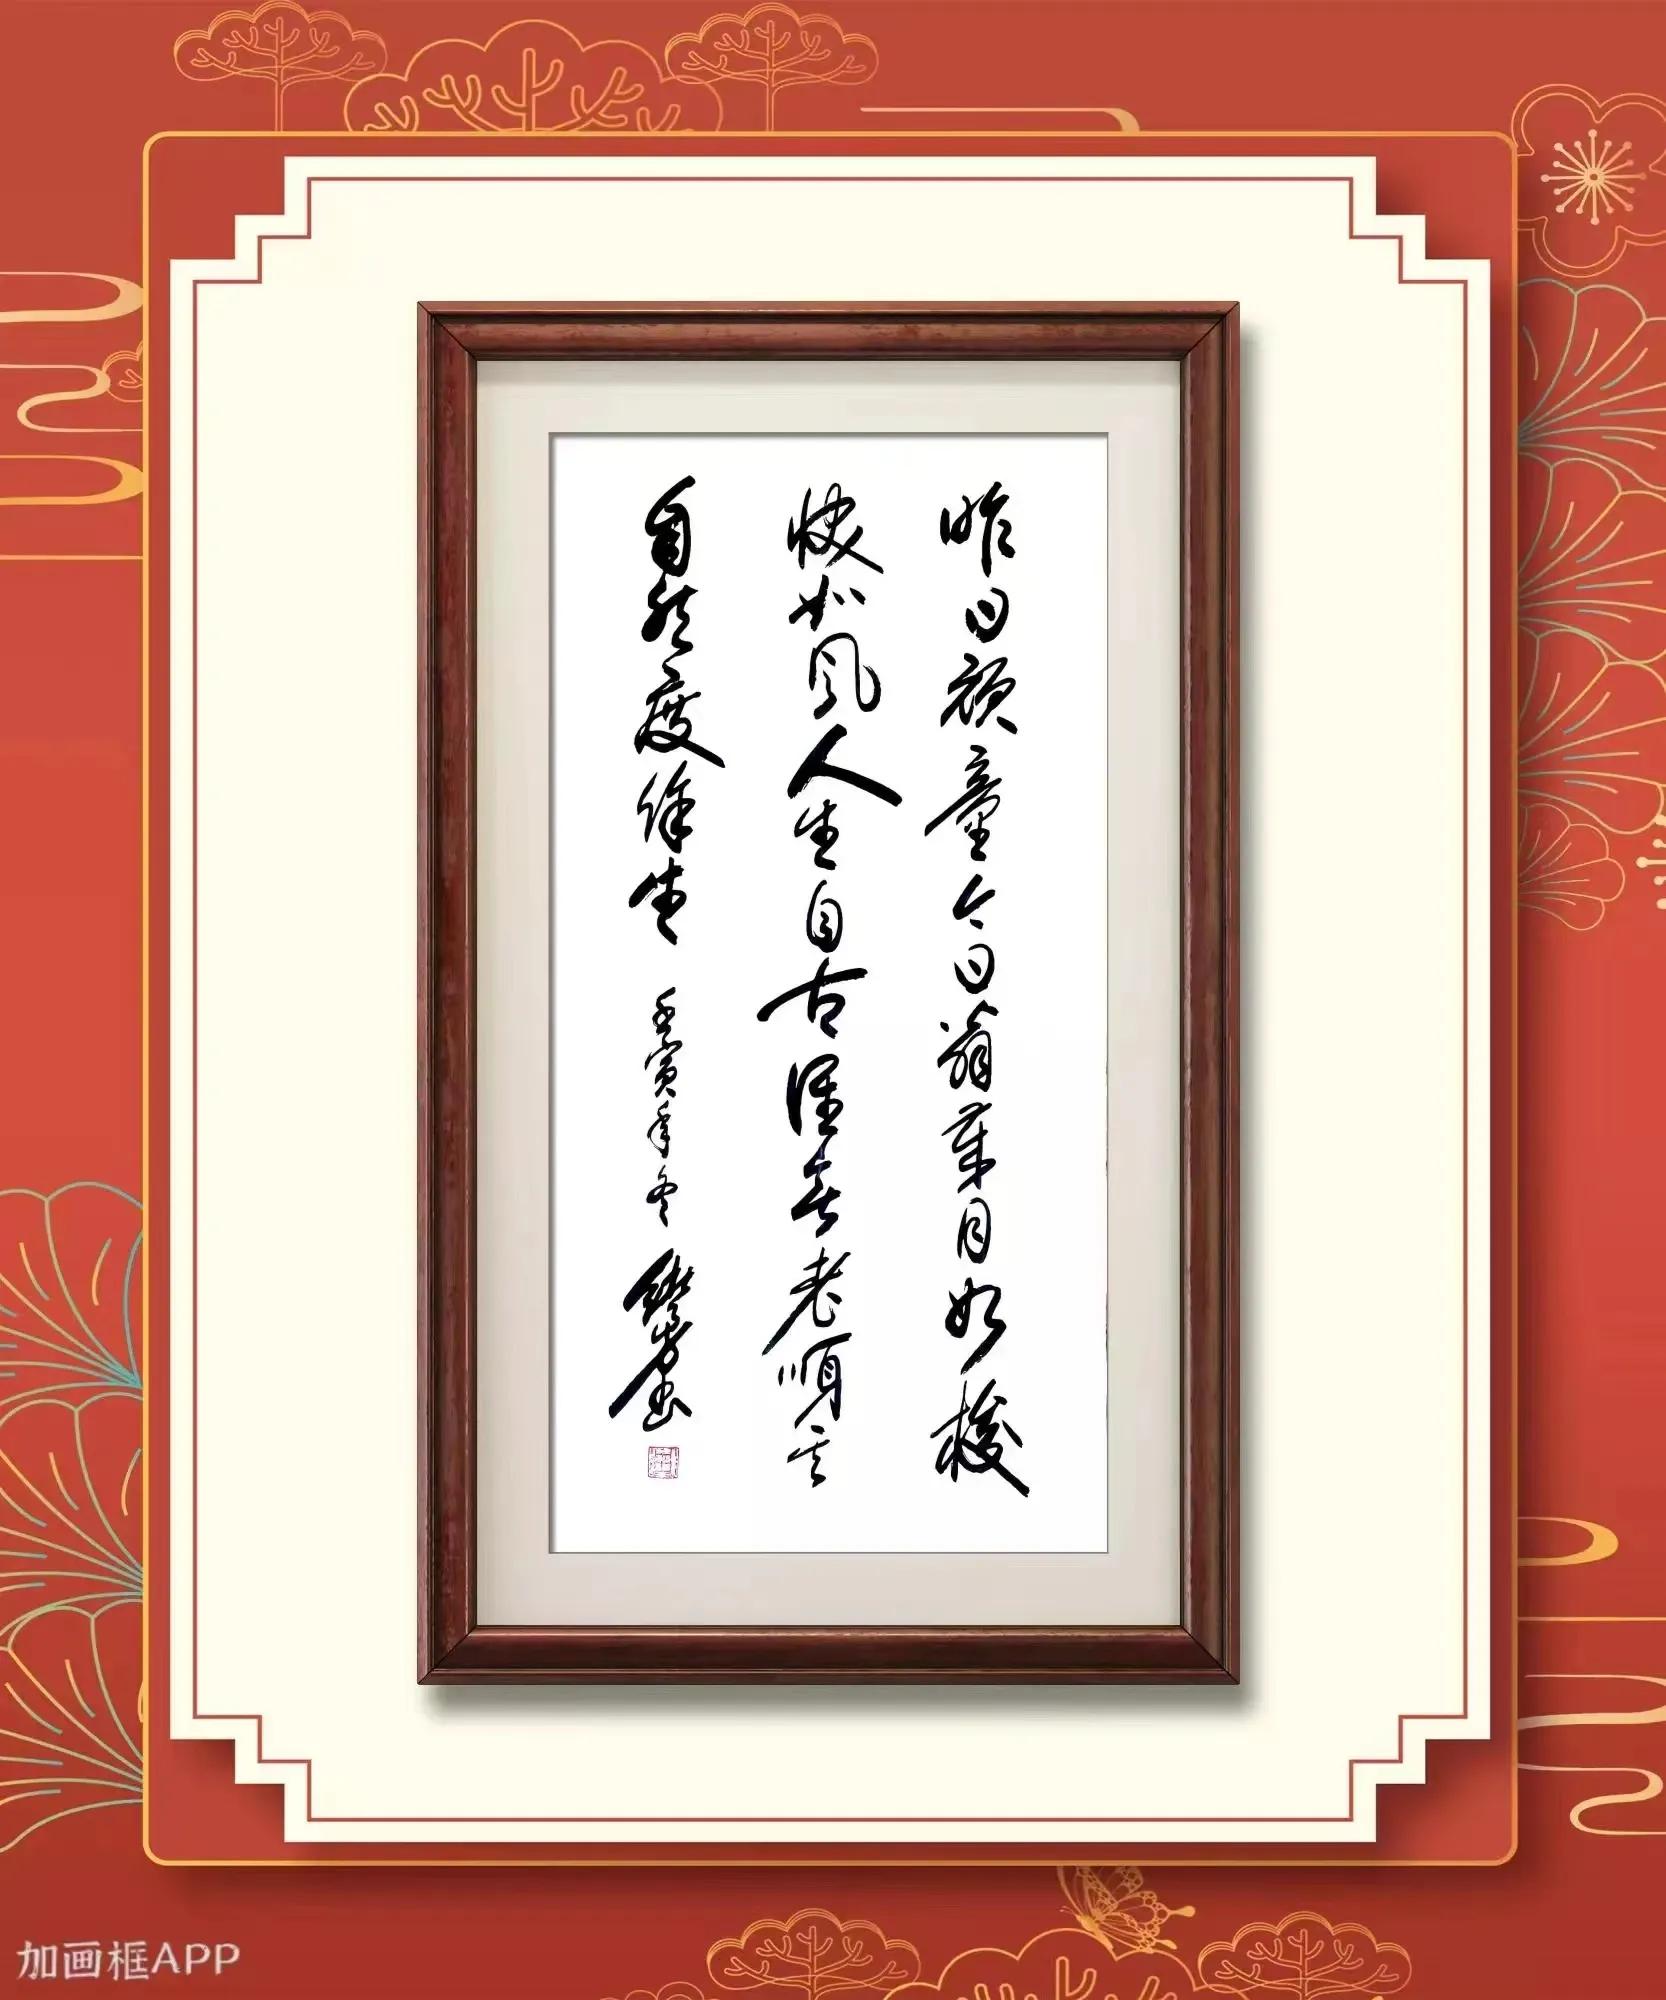 昨日颜童今日翁岁月如梭
快如风人生自古谁无老顺其
自然度余生 壬寅年冬
加画框APP